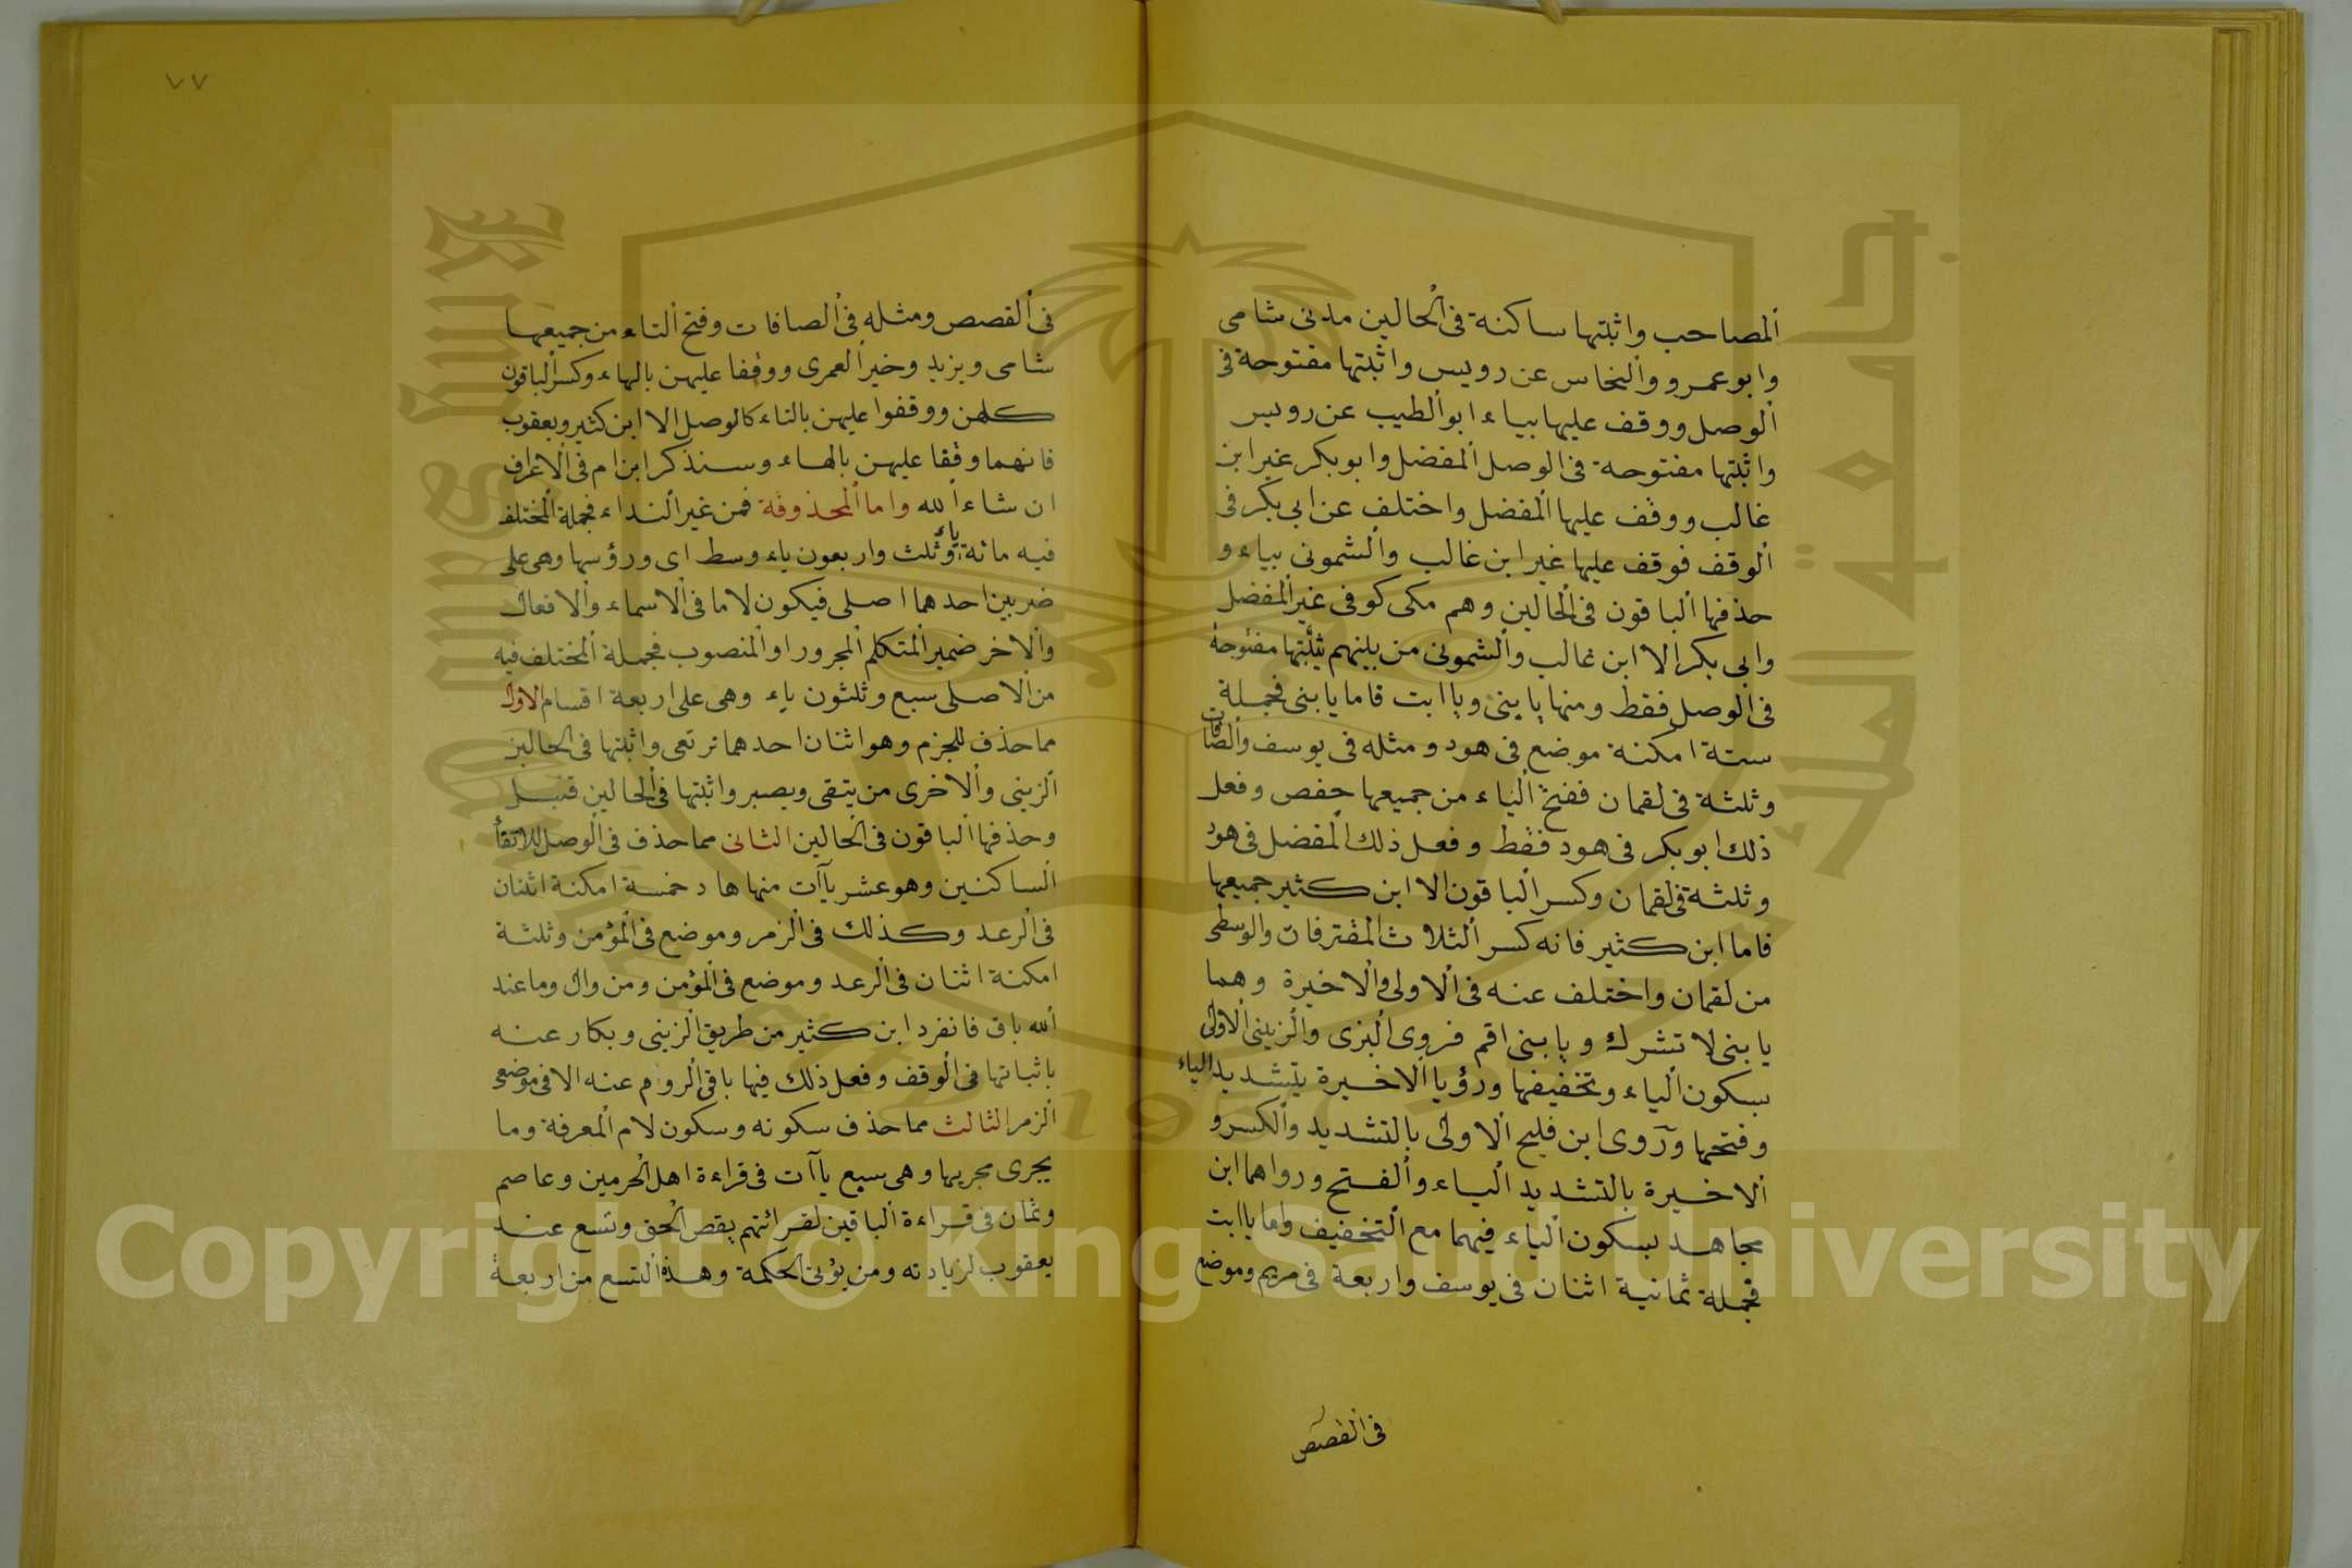 المصاحب واثبتها ساكنة فى الحالين مدنى شامى
وابو عمرو والنخاس عن رويس واثبتها مفتوحة فى
الوصل ووقف عليها بياء ابو الطيب عن رويس
واثبتها مفتوحة فى الوصل المفضل وابو بكر غير ابن
غالب ووقف عليها المفضل واختلف عن ابى بكر فى
الوقف فوقف عليها غير ابن غالب والشمونى بياء و
حذفها الباقون فى الحالين وهم مكى كوفى غير المفضل
وابى بكر الا ابن غالب والشمونى من بينهم يثبتها مفتوحة
فى الوصل فقط ومنها يا بنى ويا ابت فاما يا بنى فجملة
ستة امكنة موضع فى هود ومثله فى يوسف والصافات
وثلثة فى لقمان ففتح الياء من جميعها حفص وفعل
ذلك ابو بكر فى هود فقط وفعل ذلك المفضل فى هود
وثلثة فى لقمان وكسر الباقون الا ابن كثير جميعها
فاما ابن كثير فانه كسر الثلاث المفترقات والوسطى
من لقمان واختلف عنه فى الاولى والاخيرة وهما
يا بنى لا تشرك ويا بنى اقم فروى البزى والزينبى الاولى
بسكون الياء وتخفيفها ورؤيا الاخيرة بتشديد الياء
وفتحها وروى ابن فليح الاولى بالتشديد والكسر و
الاخيرة بالتشديد الياء والفتح ورواهما ابن
مجاهد بسكون الياء فيهما مع التخفيف واما يا ابت
فجملة ثمانية اثنان فى يوسف واربعة فى مريم وموضع
فى القصص
٧٧
فى القصص ومثله فى الصافات وفتح التاء من جميعها
شامى ويزيد وخير العمرى ووقفا عليهن بالهاء وكسر الباقون
كلهن ووقفوا عليهن بالتاء كالوصل الا ابن كثير ويعقوب
فانهما وقفا عليهن بالهاء وسنذكر ابن ام فى الاعراف
ان شاء الله واما المحذوفة فمن غير النداء فجملة المختلف
فيه مائة وثلث واربعون ياء وسط اى ورؤسها وهى على
ياء
ضربين احدهما اصلى فيكون لاما فى الاسماء والافعال
والاخر ضمير المتكلم المجرور او المنصوب فجملة المختلف فيه
من الاصلى سبع وثلثون ياء وهى على اربعة اقسام الاول
مما حذف للجزم وهو اثنان احدهما نرتعى واثبتها فى الحالين
الزينبى والاخرى من يتقى ويصبر واثبتها فى الحالين قنبل
وحذفها الباقون فى الحالين الثانى مما حذف فى الوصل للاتقا
الساكنين وهو عشر يآآت منها هاد خمسة امكنة اثنان
فى الرعد وكذلك فى الزمر وموضع فى المؤمن وثلثة
امكنة اثنان فى الرعد وموضع فى المؤمن ومن وال وما عند
الله باق فانفرد ابن كثير من طريق الزينبى وبكار عنه
باثباتها فى الوقف وفعل ذلك فيها باقى الروام عنه الا فى موضعى
الزمر الثالث مما حذف سكونه وسكون لام المعرفة وما
يجرى مجريها وهى سبع يآآت فى قراءة اهل الحرمين وعاصم
وثمان فى قراءة الباقين لقرائتهم يقص الحق وتسع عند
يعقوب لزيادته ومن يؤتى الحكمة وهذه التسع من اربعة
Copyright © King Saud University
جامعة الملك سعود
King Saud University
1957